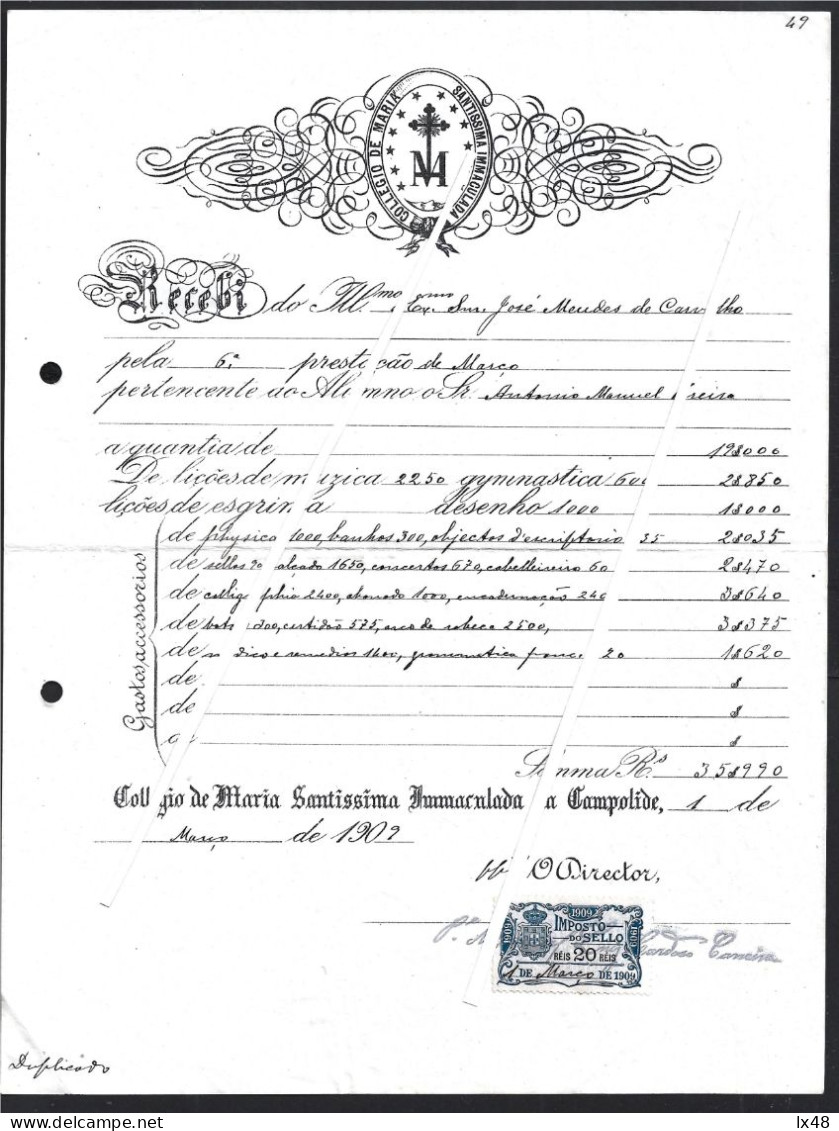 49
COLLEGIO DE MARIA SANTISSIMA IMMACULADA
M
Recebi do Illmo Exmo Snr. José Mendes de Carv lho
pela 6ª prest ção de Março
pertencente ao Al mno o Sr. Antonio Manuel
a quantia de 19$000
De lições de m zica 2250 gymnastica 600 2$850
lições de esgrim a desenho 1000 1$000
Gastos accessorios
de physica 1000, banhos 300, objectos d'escriptorio 35 2$035
de sellos 90 alçado 1650, concertos 670, cabelleireiro 60 2$470
de callig phia 2400, abonado 1000, encadernação 240 3$640
de 200, certidão 575, arco de rebeca 2500, 3$375
de dico e remedios 1400, grammatica franc 20 1$620
de $
de $
$
Somma Rs 35$990
Coll gio de Maria Santissima Immaculada a Campolide, 1 de
Março de 1909
O Director,
Cardoso
1909
1909
1909
IMPOSTO
DO SELLO
RÉIS 20 RÉIS
1 DE Março DE 1909
Duplicado
lx48